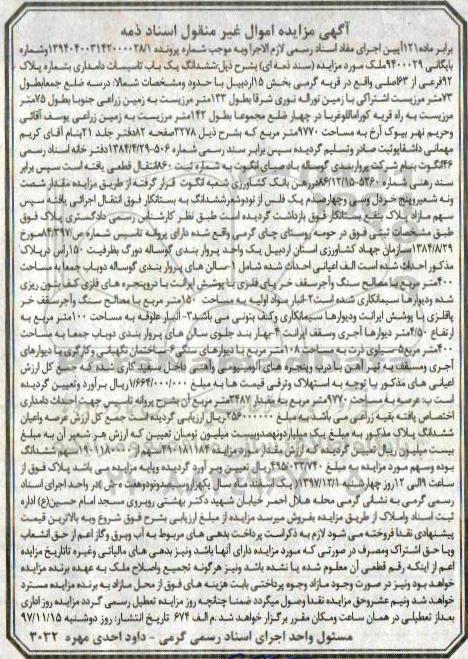 آگهی مزایده اموال غیر منقول اسناد ذمه
برابر ماده۱۲۱آیین اجرای مفاد اسناد رسمی لازم الاجرا وبه موجب شماره پرونده ۱۳۹۴۰۴۰۰۳۱۴۲۰۰۰۰۲۸/۱وشماره
بایگانی ۹۴۰۰۰۲۹ ملک مورد مزایده (سند ذمه ای) بشرح ذیل:ششدانگ یک باب تاسیسات دامداری بشماره پلاک
۹۲فرعی از ۶۳اصلی واقع در قریه گرمی بخش ۱۵اردبیل با حدود ومشخصات شمالا: درسه ضلع جمعابطول
۷۳متر مرزیست اشتراکی با زمین نوراله نوری شرقا بطول ۱۳۳متر مرزیست به زمین زراعی جنوبا بطول ۷۵متر
مرزیست به راه قریه کورامااوغربا در چهار ضلع مجموعا بطول ۱۴۲متر مرزیست به زمین زراعی یوسف آقائی
وحریم نهر بیوک آرخ به مساحت ۹۷۷۰متر مربع که بشرح ذیل ۳۲۷۸صفحه ۸۲دفتر جلد ۲۱بنام آقای کریم
مهمانی داشقاپوئیت صادر وتسلیم گردیده سپس برابر سند رسمی شماره ۵۰۶-۱۳۸۴/۴/۲۹دفتر خانه اسناد رسمی
۴۶انگوت بنام شرکت پرواربندی گوساله یاد صبای انگوت به شماره ثبت ۸۶۰انتقال قطعی یافته است سپس برابر
سند رهنی شماره ۵۲۶۰-۸۶/۱۲/۱۵در رهن بانک کشاورزی شعبه انگوت قرار گرفته از طریق مزایده مقدار شصت
ونه شعیر وپنج خردل وسی وچهارصدم یک فلس از نودوشعر ششدانگ به بستانکار فوق انتقال اجرائی یافته سپس
سهم مازاد پلاک بنفع بستانکار فوق بازداشت گردیده است طبق نظر کارشناس رسمی دادگستری پلاک فوق
طبق مشخصات ثبتی فوق در حومه روستای چای گرمی واقع شده دارای پروانه تاسیس شماره ص/۱۴۳۹۷مورخ
۱۳۸۴/۸/۲۹سازمان جهاد کشاورزی استان اردبیل یک واحد پروار بندی گوساله دورگ بظرفیت ۱۵۰راس درپلاک
مذکور احداث شده است الف اعیانی احداث شده شامل ۱-سالن های پروار بندی گوساله دوباب جمعا به مساحت
۴۰۰متر مربع با مصالح سنگ وآجرسقف خر پای فلزی با پوشش ایرانت با دروپنجره های فلزی کف بتون ریزی
شده ودیوارها سیمانکاری شده است۲-انبار مواد اولیه به مساحت ۱۵۰متر مربع با مصالح سنگ وآجرسقف خر
پافلزی با پوشش ایرانت ودیوارها سیمانکاری وکف بتونی می باشد۳-انبار علوفه به مساحت ۱۰۰متر مربع به
ارتفاع ۴/۵۰متر دیوارها آجری وسقف ایرانت ۴-بهار بند جلوی سالن های پروار بندی دوباب جمعا به مساحت
۴۰۰متر مربع ۵-سیلوی ذرت به مساحت ۱۰۸متر مربع با دیوارهای سنگی۶-ساختمان نگهبانی وکارگری با دیوارهای
آجری ومسقف به تیر آهن با درب وپنجره های آلومینیومی واهنی داخل سفید کاری شده که جمع کل ارزش
اعیانی های مذکور با توجه به استهلاک وترقی قیمت ها به مبلغ ۱/۶۶۴/۰۰۰/۰۰۰ریال برآورد وتعیین گردیده
است ب: عرصه به مساحت ۹۷۷۰متر مربع به مقدار ۳۴۸۷متر مربع آن بشرح پروانه تاسیس جهت احداث دامداری
اختصاص یافته بقیه زراعی می باشد به مبلغ ۲۵۶۰۰۰۰۰۰ریال ارزیابی گردیده است جمع کل ارزش عرصه واعیان
ششدانگ پلاک مذکور به مبلغ یک میلیاردونهصدوبیست میلیون تومان تعیین که ارزش هر شعیر آن به مبلغ
بیست میلیون ریال تعیین گردیده که ارزش مقدار مورد مزایده ۴۹۰۱۸۱۱۸۴سهم از ۱۹۰۱۱۸۰۰۰سهم ششدانگ
بوده وسهم مورد مزایده به مبلغ ۴۹۵۰۲۳/۷۴۰ریال تعیین وبر آورد گردیده وپایه مزایده می باشد پلاک فوق از
ساعت ۹الی ۱۲روز چهارشنبه ۱۳۹۷/۱۲/۱یک اسفند ماه سال یکهزاروسیصدونودوهفت ه-ش)در واحد اجرای اسناد
رسمی گرمی به نشانی گرمی محله هلال احمر خیابان شهید دکتر بهشتی روبروی مسجد امام حسین(ع) اداره
ثبت اسناد واملاک از طریق مزایده بفروش میرسد مزایده از مبلغ ارزیابی بشرح فوق شروع وبه بالاترین قیمت
پیشنهادی نقدا فروخته می شود لازم به ذکراست پرداخت بدهی های مربوط به آب وبرق وگاز اعم از حق انشعاب
ویا حق اشتراک ومصرف در صورتی که مورد مزایده دارای آنها باشد ونیز بدهی های مالیاتی وغیره تاتاریخ مزایده
اعم از اینکه رقم قطعی آن معلوم شده یا نشده باشد ونیز هرگونه تجمیع واصلاح ملک به عهده برنده مزایده
خواهد بود ونیز در صورت وجود مازاد وجوه پرداختی بابت هزینه های فوق از محل مازاد به برنده مزایده مسترد
خواهد شد ونیم عشر وحق مزایده نقدا وصول میگردد ضمنا چنانچه روز مزایده تعطیل رسمی گردد مزایده روز اداری
بعداز تعطیلی در همان ساعت ومکان مقرر برگزار خواهد شد.م الف ۶۷۴ تاریخ انتشار: روز دوشنبه ۹۷/۱۱/۱۵
مسئول واحد اجرای اسناد رسمی گرمی - داود احدی مهره ۳۰۳۲